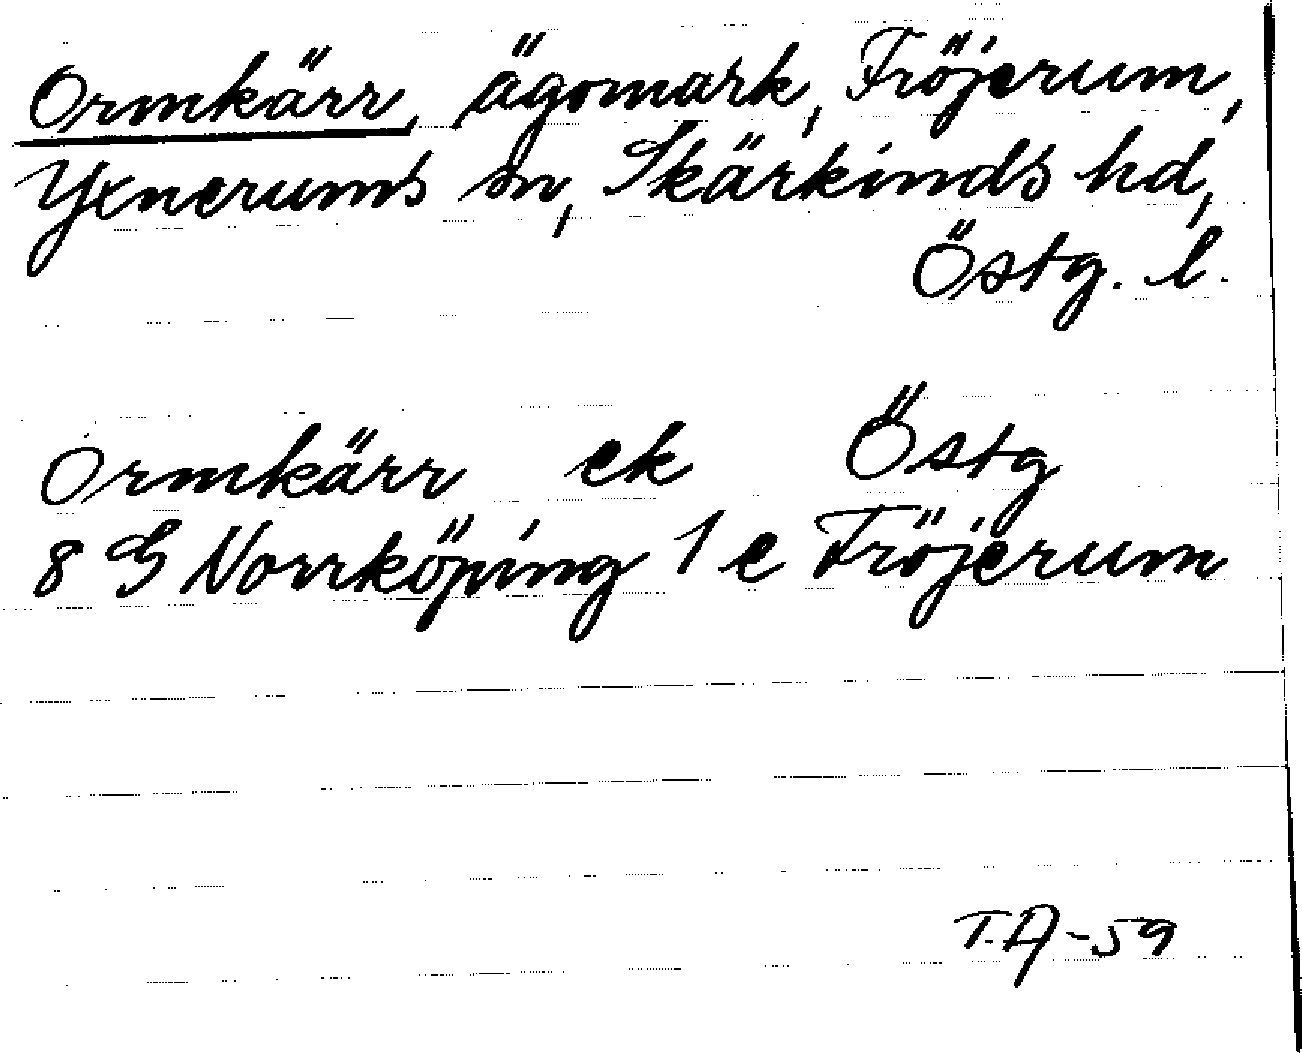 Ormkärr, ägomark, Fröjerum,
Yxnerums sn, Skärkinds hd,
Östg. l.
Ormkärr ek Östg
8 G Norrköping 1 e Fröjerum
T.A-59